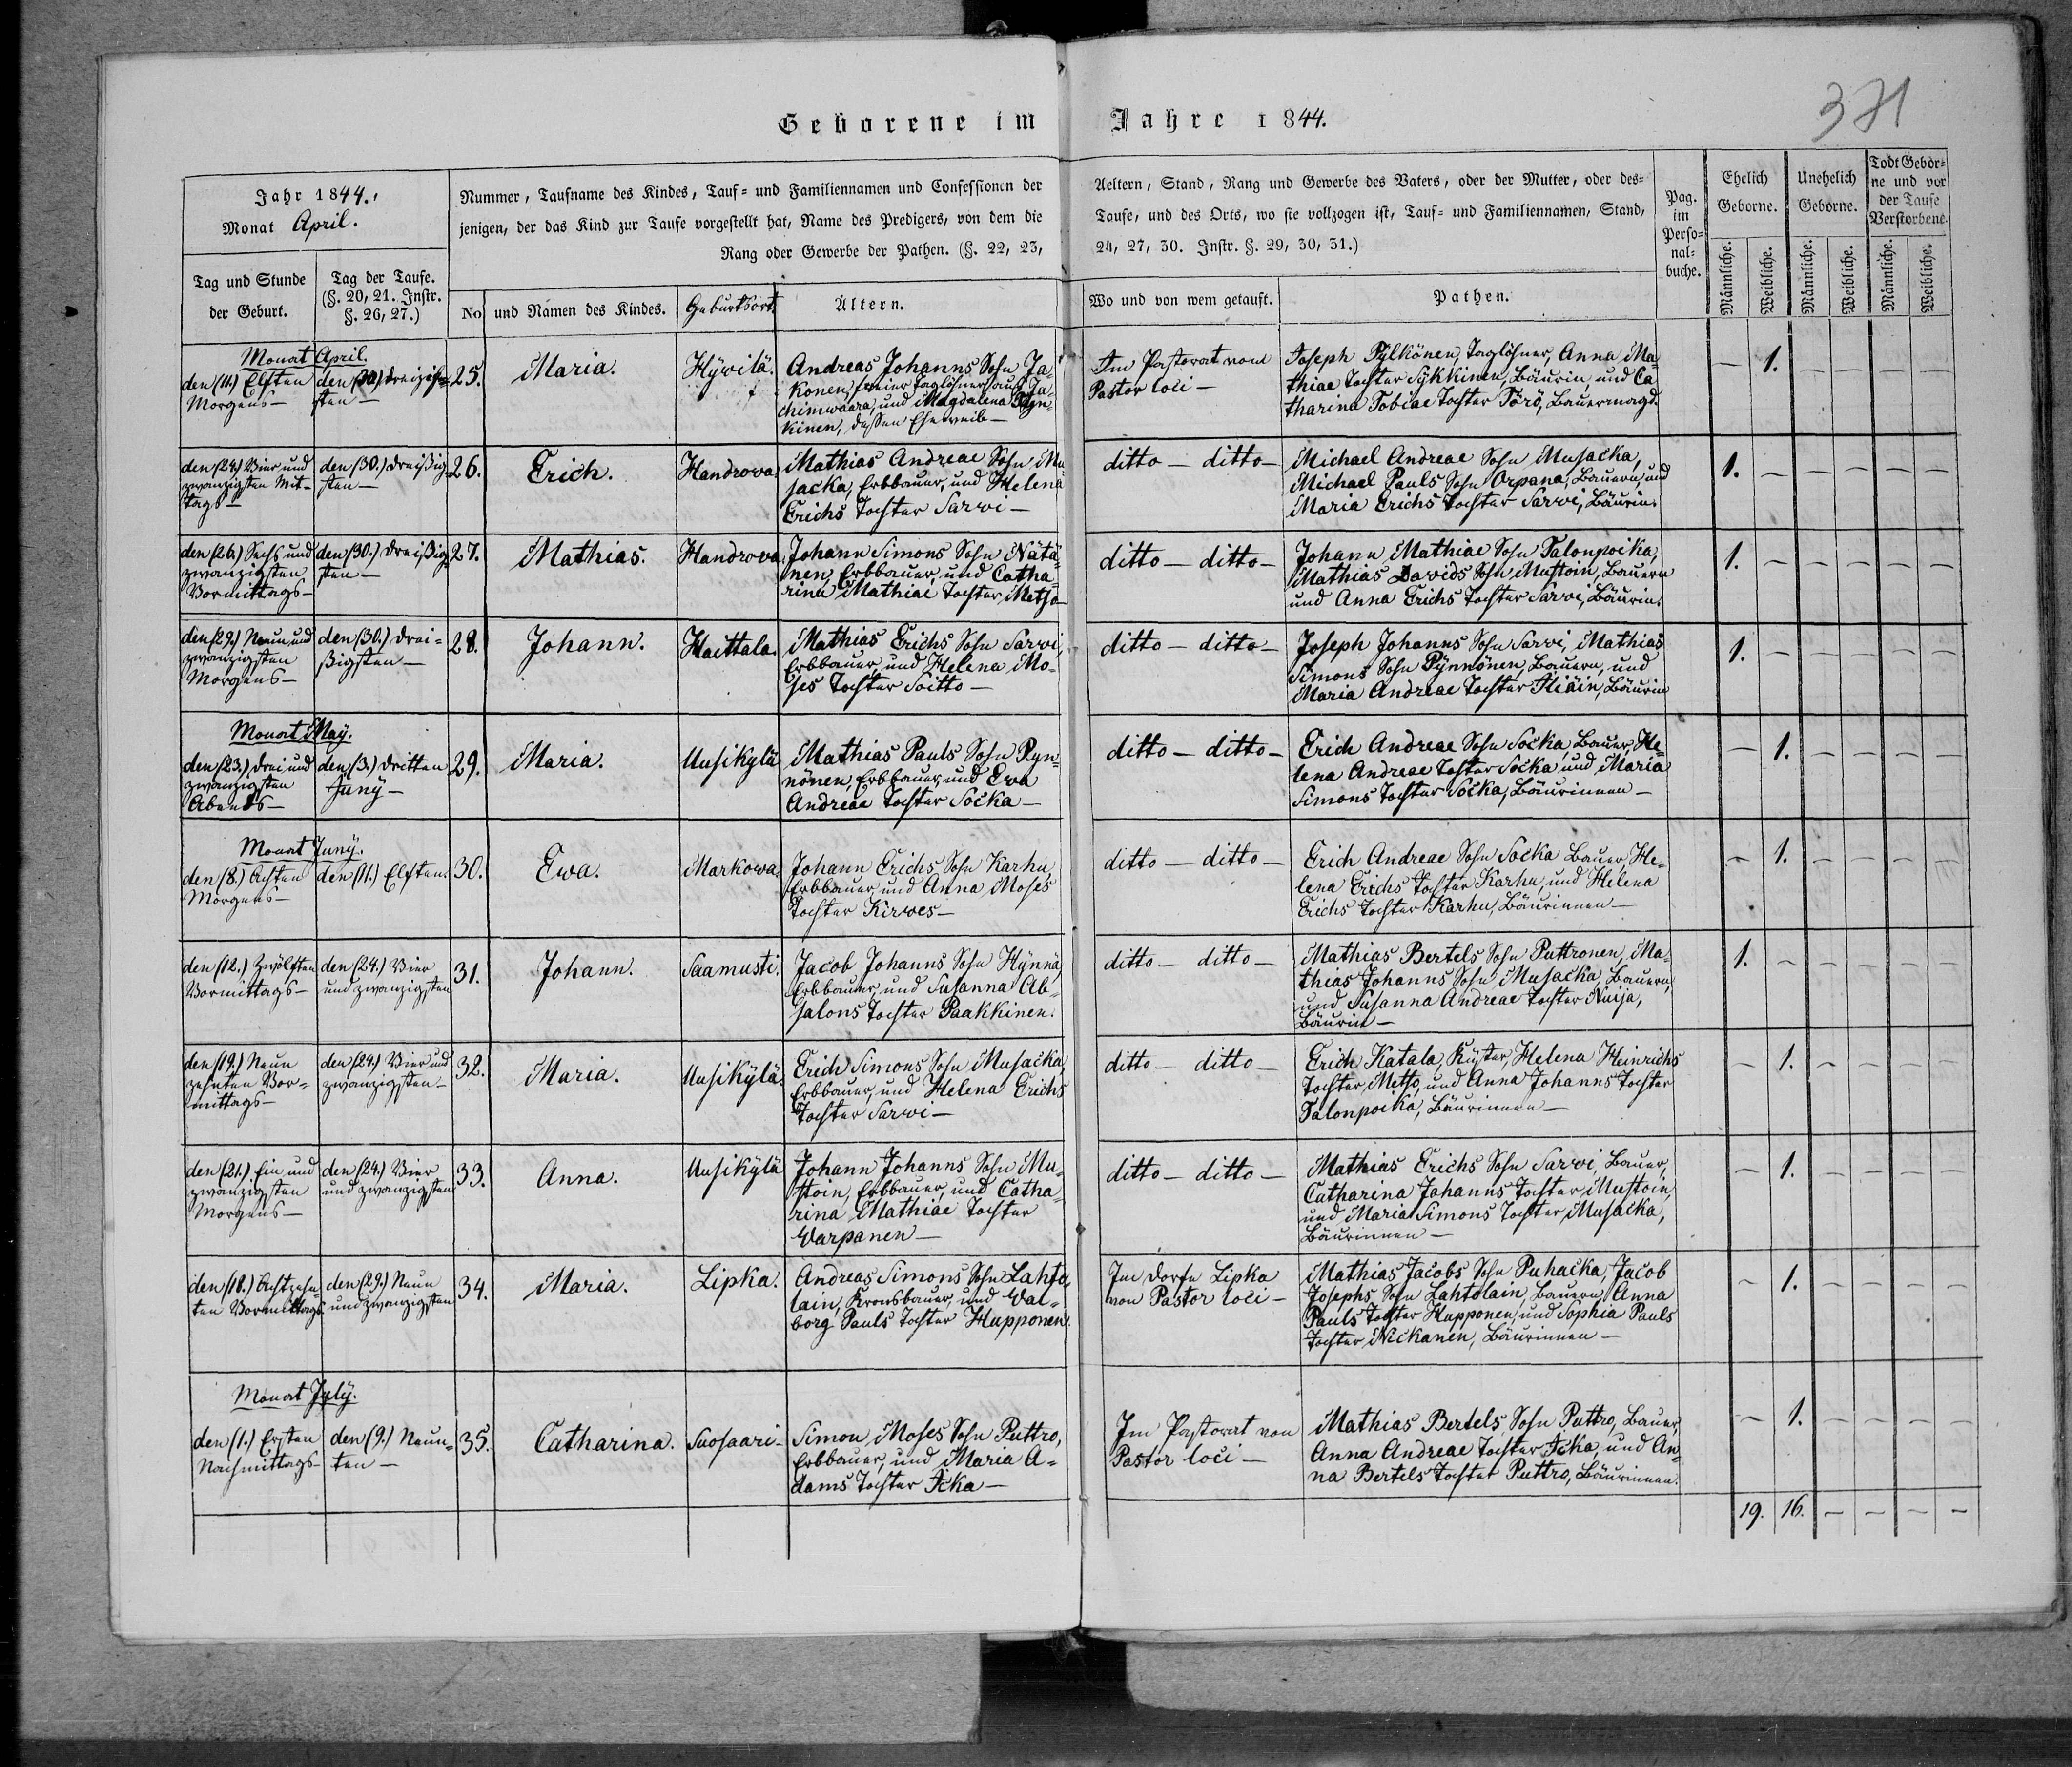 Geborene im Jahre 1844.
371
Jahr 1844.
Monat April.
Nummer, Taufname des Kindes, Tauf- und Familiennamen und Confessionen der
jenigen, der das Kind zur Taufe vorgestellt hat, Name des Predigers, von dem die
Rang oder Gewerbe der Pathen. (§. 22, 23,
Aeltern, Stand, Rang und Gewerbe des Vaters, oder der Mutter, oder des-
Taufe, und des Orts, wo sie vollzogen ist, Tauf- und Familiennamen, Stand,
24, 27, 30. Instr. §. 29, 30, 31.)
Pag.
im
Perso-
nal-
buche.
Ehelich
Geborne.
Unehelich
Geborne.
Todt Gebor-
ne und vor
der Taufe
Verstorbene.
Tag und Stunde
der Geburt.
Tag der Taufe.
(§. 20, 21. Instr.
§. 26, 27.)
No
und Namen des Kindes.
Geburtsort.
Ältern.
Wo und von wem getauft.
Pathen.
Männliche.
Weibliche.
Männliche.
Weibliche.
Männliche.
Weibliche.
Monat April.
den (11.) Elften
Morgens—
den dreizehn-
ten—
25.
Maria.
Hÿwilä.
Andreas Johanns Sohn Ja-
konen, freier Taglöhner aus
chimwaara, und Magdalena
kinen, dessen Eheweib—
Im Pastorat vom
Pastor loci—
Joseph Pÿlkönen, Taglöhner, Anna Ma-
thiae Tochter Sÿkkinen, Bäurin und Ca
tharina Tobiae Tochter Törö, Bauermagd.
— 1. — — — —
den (24.) Vier und
zwanzigsten Mit-
tags—
den (30.) Dreißig-
sten—
26.
Erich.
Handrowa.
Mathias Andreae Sohn Mu-
sacka, Erbbauer, und Helena
Erichs Tochter Sarwi—
ditto — ditto —
Michael Andreae Sohn Musacka,
Michael Pauls Sohn Orpana, Bauern, und
Maria Erichs Tochter Sarwi, Bäurin.
1. — — — — —
den (26.) Sechs und
zwanzigsten
Vormittags—
den (30.) Dreißig-
sten—
27.
Mathias.
Handrowa.
Johann Simons Sohn Nätä-
nen, Erbbauer, und Catha-
rina Mathiae Tochter Metso—
ditto — ditto —
Johann Mathiae Sohn Talonpoika,
Mathias Davids Sohn Mustoin, Bauern
und Anna Erichs Tochter Sarwi, Bäurin.
1. — — — — —
den (29.) Neun und
zwanzigsten
Morgens—
den (30.) Drei-
ßigsten—
28.
Johann.
Haittala.
Mathias Erichs Sohn Sarwi,
Erbbauer, und Helena Mo-
ses Tochter Soitto—
ditto — ditto —
Joseph Johanns Sohn Sarwi, Mathias
Simons Sohn Pÿnnönen, Bauern, und
Maria Andreae Tochter Häiäin, Bäurin
1. — — — — —
Monat May.
den (23.) drei und
zwanzigsten
Abends—
den (3.) Dritten
Juny—
29.
Maria.
Uusikylä
Mathias Pauls Sohn Pyn-
nönen, Erbbauer, und Ewa
Andreae Tochter Socka—
ditto — ditto —
Erich Andreae Sohn Socka, Bauer, He-
lena Andreae Tochter Socka und Maria
Simons Tochter Socka, Bäurinnen—
— 1. — — — —
Monat Juny.
den (8.) Achten
Morgens—
den (11.) Elften.
30.
Ewa.
Markowa.
Johann Erichs Sohn Karhu,
Erbbauer, und Anna Moses
Tochter Kirwes—
ditto — ditto —
Erich Andreae Sohn Socka Bauer, He-
lena Erichs Tochter Karhu, und Helena
Erichs Tochter Karhu, Bäurinnen—
— 1. — — — —
den (12.) Zwölften
Vormittags—
den (24.) Vier
und zwanzigsten
31.
Johann.
Saamusti.
Jacob Johanns Sohn Hÿnnä
Erbbauer, und Susanna Ab-
salons Tochter Paakkinen.
ditto — ditto —
Mathias Bertels Sohn Puttronen, Ma-
thias Johanns Sohn Musacka, Bauern,
und Susanna Andreae Tochter Nuija,
Bäurin—
1. — — — — —
den (19.) Neun
zehnten Vor-
mittags—
den (24.) Vier und
zwanzigsten—
32.
Maria.
Uusikylä.
Erich Simons Sohn Musacka
Erbbauer, und Helena Erichs
Tochter Sarwi—
ditto — ditto —
Erich Katala, Küster, Helena Heinrichs
Tochter Metso, und Anna Johanns Tochter
Talonpoika, Bäurinnen—
— 1. — — — —
den (21.) Ein und
zwanzigsten
Morgens—
den (24.) Vier
und zwanzigsten
33.
Anna.
Uusikylä
Johann Johanns Sohn Mu-
stoin, Erbbauer, und Catha-
rina Mathiae Tochter
Warpanen—
ditto — ditto —
Mathias Erichs Sohn Sarwi, Bauer,
Catharina Johanns Tochter Mustoin,
und Maria Simons Tochter Musacka,
Bäurinnen—
— 1. — — — —
den (18.) Achtzehn-
ten Vormittags
den (29.) Neun
und zwanzigsten
34.
Maria.
Lipka.
Andreas Simons Sohn Lahto
lain, Kronsbauer, und Wal-
borg Pauls Tochter Hupponen.
Im Dorfe Lipka
von Pastor loci—
Mathias Jacobs Sohn Puhacka, Jacob
Josephs Sohn Lahtolain, Bauern, Anna
Pauls Tochter Hupponen, und Sophia Pauls
Tochter Nickanen, Bäurinnen—
— 1. — — — —
Monat July.
den (1.) Ersten
Nachmittags—
den (9.) Neun-
ten—
35.
Catharina.
Suosaari—
Simon Moses Sohn Puttro,
Erbbauer, und Maria A-
dams Tochter Icka—
Im Pastorat von
Pastor loci—
Mathias Bertels Sohn Puttro, Bauer,
Anna Andreae Tochter Icka, und An-
na Bertels Tochter Puttro, Bäurinnen.
— 1. — — — —
19. 16. — — — —